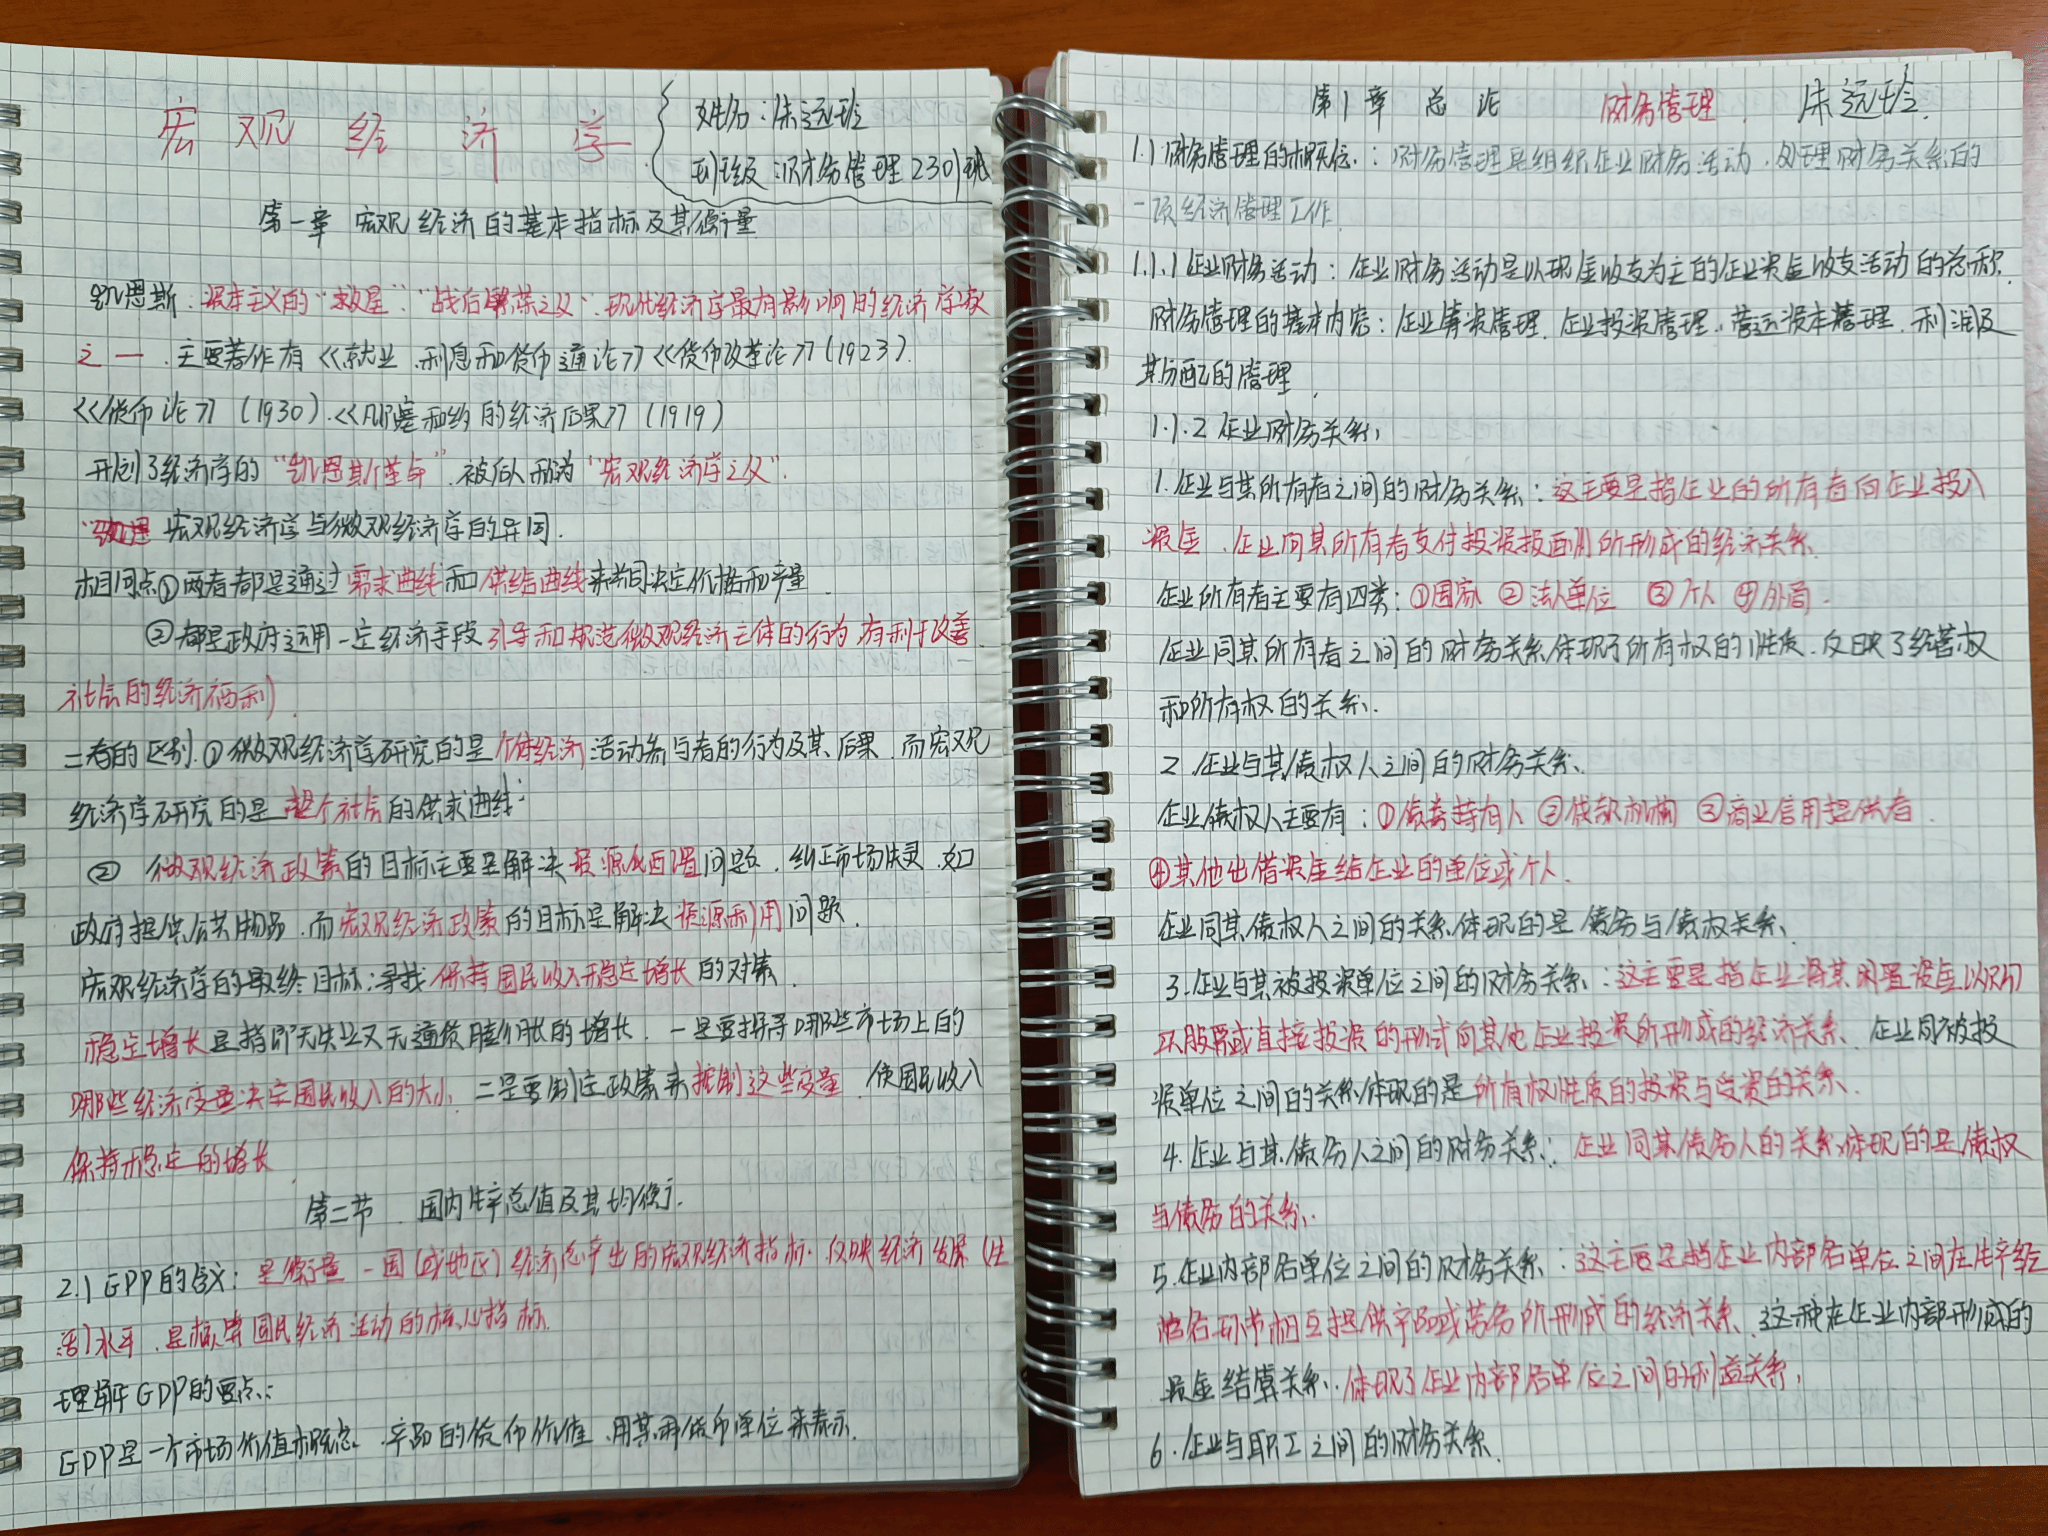 宏观经济学
姓名：朱远玲
班级：财务管理2301班
第一章 宏观经济的基本指标及其衡量
凯恩斯：资本主义的“救星”“战后繁荣之父”现代经济学最有影响的经济学家
之一．主要著作有<<就业、利息和货币通论>><<货币改革论>>(1923).
<<货币论>>(1930).<<凡尔塞和约的经济后果>>(1919)
开创了经济学的“凯恩斯革命”.被后人称为“宏观经济学之父”.
宏观经济学与微观经济学的异同.
相同点①两者都是通过需求曲线和供给曲线来共同决定价格和产量.
②都是政府运用一定经济手段引导和规范微观经济主体的行为.有利于改善
社会的经济福利).
二者的区别.①微观经济学研究的是个体经济活动参与者的行为及其后果.而宏观
经济学研究的是整个社会的供求曲线.
② 微观经济政策的目标主要是解决资源配置问题.纠正市场失灵.如
政府提供公共物品.而宏观经济政策的目标是解决资源利用问题.
宏观经济学的最终目标:寻找保持国民收入稳定增长的对策.
稳定增长是指即无失业又无通货膨胀的增长.一是要探寻哪些市场上的
哪些经济变量决定国民收入的大小.二是要制定政策来控制这些变量.使国民收入
保持稳定的增长
第二节.国内生产总值及其均衡.
2.1 GPP的含义:是衡量一国(或地区)经济总产出的宏观经济指标.反映经济发展(生
活)水平.是核算国民经济活动的核心指标.
理解GDP的要点:
GDP是一个市场价值概念.产品的货币价值.用某种货币单位来表示.
第1章 总论 财务管理. 朱远玲.
1.1财务管理的概念.:财务管理是组织企业财务活动.处理财务关系的
一项经济管理工作.
1.1.1企业财务活动:企业财务活动是以现金收支为主的企业资金收支活动的总称.
财务管理的基本内容:企业筹资管理.企业投资管理.营运资本管理.利润及
其分配的管理.
1.1.2企业财务关系.
1.企业与其所有者之间的财务关系:这主要是指企业的所有者向企业投入
资金.企业向其所有者支付投资报酬所形成的经济关系.
企业所有者主要有四类:①国家 ②法人单位 ③个人 ④外商.
企业同其所有者之间的财务关系体现了所有权的性质.反映了经营权
和所有权的关系.
2.企业与其债权人之间的财务关系.
企业债权人主要有:①债券持有人 ②贷款机构 ③商业信用提供者.
④其他出借资金给企业的单位或个人.
企业同其债权人之间的关系体现的是债务与债权关系.
3.企业与其被投资单位之间的财务关系:这主要是指企业将其闲置资金以购
买股票或直接投资的形式向其他企业投资所形成的经济关系.企业同被投
资单位之间的关系体现的是所有权性质的投资与受资的关系.
4.企业与其债务人之间的财务关系:企业同其债务人的关系体现的是债权
与债务的关系.
5.企业内部各单位之间的财务关系:这主要是指企业内部各单位之间在生产经
营各环节相互提供产品或劳务所形成的经济关系.这种在企业内部形成的
资金结算关系.体现了企业内部各单位之间的利益关系.
6.企业与职工之间的财务关系.